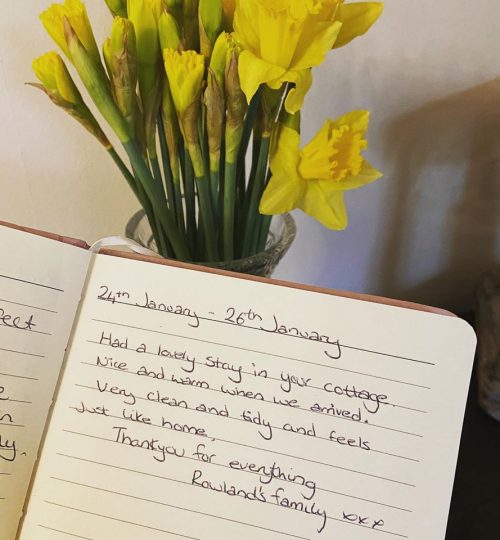 24th January - 26th January
Had a lovely stay in your cottage.
Nice and warm when we arrived.
Very clean and tidy and feels
Just like home.
Thankyou for everything
Rowland's family xxx